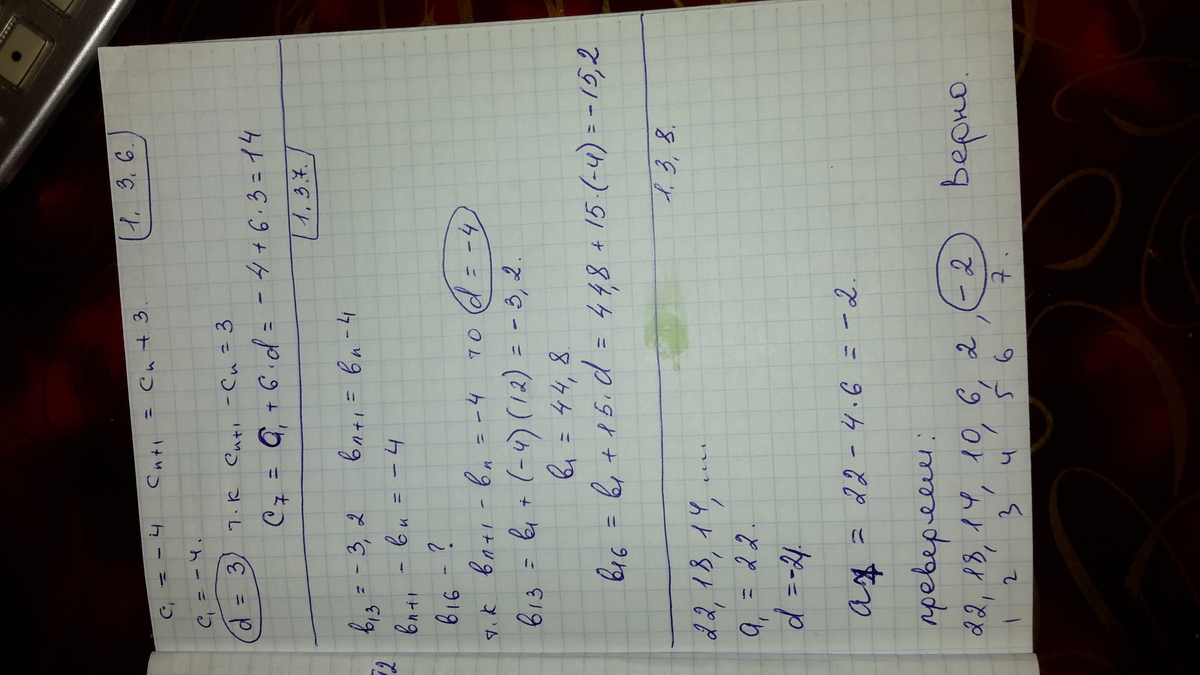 1.3.6.
c₁ = -4 cₙ₊₁ = cₙ + 3.
c₁ = -4.
d = 3 т.к cₙ₊₁ - cₙ = 3
c₇ = a₁ + 6·d = -4 + 6·3 = 14
1.3.7.
в₁₃ = -3,2 вₙ₊₁ = вₙ - 4
вₙ₊₁ - вₙ = -4
в₁₆ - ?
т.к вₙ₊₁ - вₙ = -4 то d = -4
в₁₃ = в₁ + (-4)(12) = -3,2.
в₁ = 44,8.
в₁₆ = в₁ + 15·d = 44,8 + 15·(-4) = -15,2
1.3.8.
22, 18, 14, ....
a₁ = 22.
d = -4.
a₇ = 22 - 4·6 = -2.
проверяем:
22, 18, 14, 10, 6, 2, -2 Верно.
1 2 3 4 5 6 7.
12